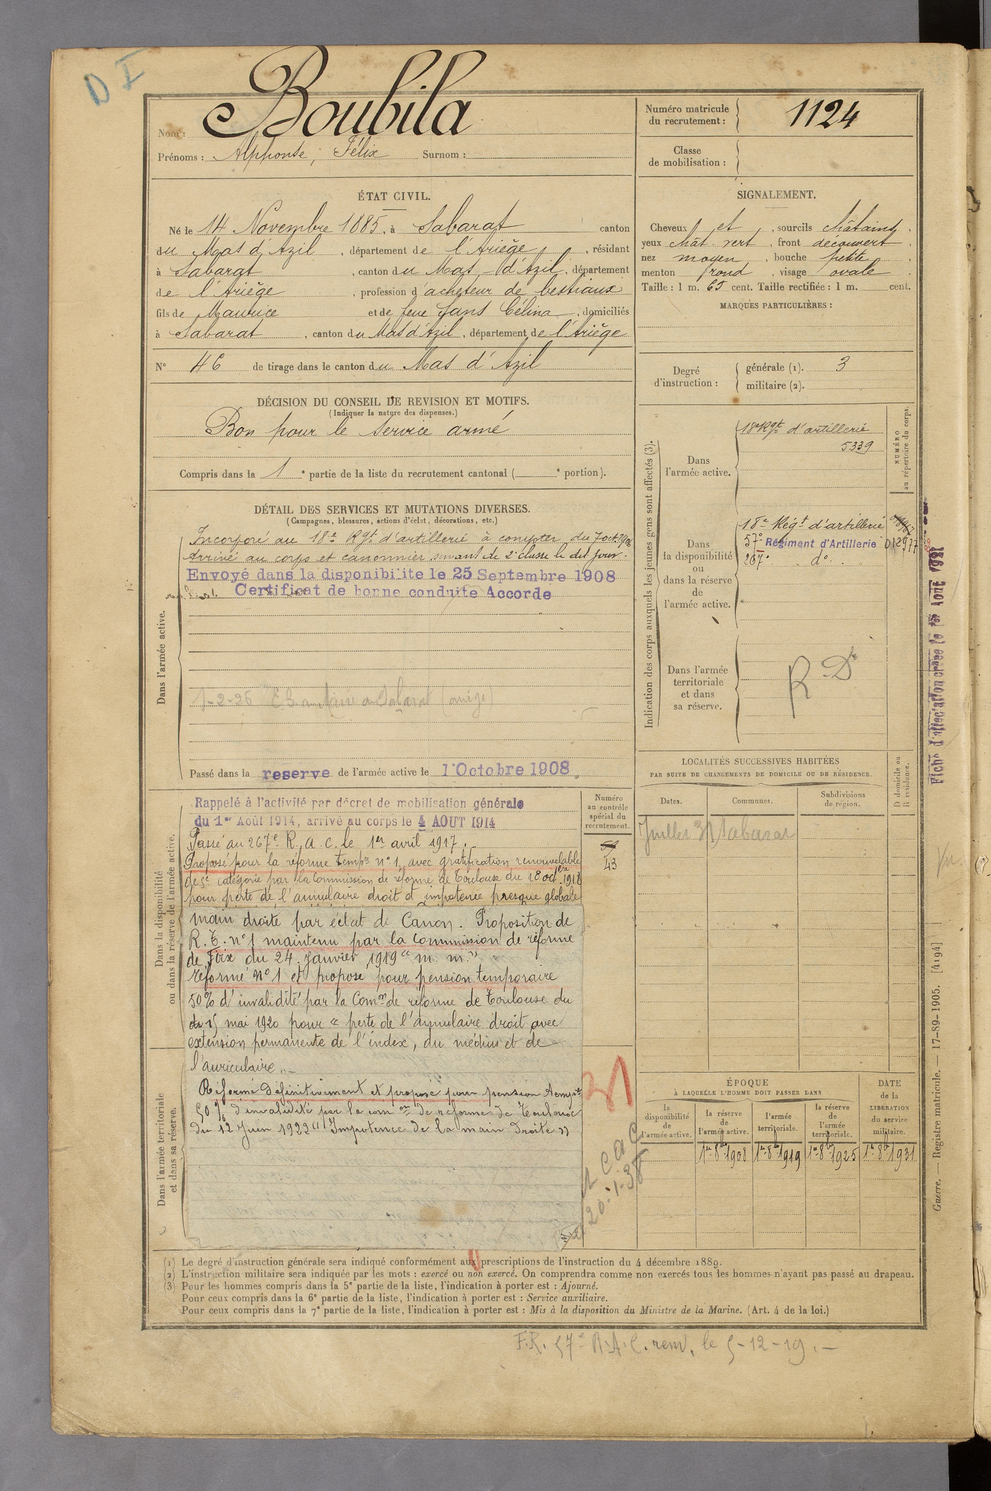 D I
Nom : Boubila
Prénoms : Alphonse, Félix Surnom :
Numéro matricule du recrutement : 1124
Classe de mobilisation :
ÉTAT CIVIL.
Né le 14 Novembre 1885, à Sabarat canton
du Mas d'Azil, département de l'Ariège, résidant
à Sabarat, canton du Mas-d'Azil, département
de l'Ariège, profession d'acheteur de bestiaux
fils de Maurice et de feue Jans Célina, domiciliés
à Sabarat, canton du Mas d'Azil, département de l'Ariège
N° 46 de tirage dans le canton du Mas d'Azil
SIGNALEMENT.
Cheveux et, sourcils châtains
yeux chât vert, front découvert
nez moyen, bouche petite
menton rond, visage ovale
Taille : 1 m. 65 cent. Taille rectifiée : 1 m. cent.
MARQUES PARTICULIÈRES :
Degré d'instruction : générale (1). 3
militaire (2).
DÉCISION DU CONSEIL DE REVISION ET MOTIFS.
(Indiquer la nature des dispenses.)
Bon pour le service armé
Compris dans la 1e partie de la liste du recrutement cantonal ( e portion).
DÉTAIL DES SERVICES ET MUTATIONS DIVERSES.
(Campagnes, blessures, actions d'éclat, décorations, etc.)
Dans l'armée active.
Incorporé au 18e Rgt d'artillerie à compter du 7 oct
Arrivé au corps et canonnier servant de 2e classe le dit jour.
Envoyé dans la disponibilite le 25 Septembre 1908
Certificat de bonne conduite Accorde
1-2-26 à Sabarat (Ariège)
Passé dans la reserve de l'armée active le 1 Octobre 1908.
Indication des corps auxquels les jeunes gens sont affectés (3).
NUMÉRO au répertoire du corps.
Dans l'armée active.
18e Rgt d'artillerie
5339
Dans la disponibilité ou dans la réserve de l'armée active.
18e Régt d'artillerie
57e Régiment d'Artillerie
267e d°
Dans l'armée territoriale et dans sa réserve.
R D
Fiche d'affectation créée le 1er AOUT 1921
LOCALITÉS SUCCESSIVES HABITÉES
PAR SUITE DE CHANGEMENTS DE DOMICILE OU DE RÉSIDENCE.
Dates. Communes. Subdivisions de région. D domicile ou R résidence.
Juillet 31 Sabarat
Dans la disponibilité ou dans la réserve de l'armée active.
Numéro au contrôle spécial du recrutement.
43
Rappelé à l'activité par décret de mobilisation générale
du 1er Août 1914, arrivé au corps le 4 AOUT 1914
Passé au 267e R.A.C. le 1er avril 1917.
Proposé pour la réforme tempre n° 1, avec gratification renouvelable
de 5e catégorie par la Commission de réforme de Toulouse du 18 octbre 1918
pour perte de l'annulaire droit et impotence presque globale
main droite par éclat de Canon. Proposition de
R.T. n° 1 maintenu par la Commission de réforme
de Foix du 24 janvier 1919 "m. m."
Réformé N° 1 et proposé pour pension temporaire
50% d'invalidité par la Comon de réforme de Toulouse du
du 15 mai 1920 pour "perte de l'annulaire droit avec
extension permanente de l'index, du médius et de
l'auriculaire"
Réformé définitivement et proposé pour pension tempre
50% d'invalidité par la comon de réforme de Toulouse
du 12 juin 1922 "Impotence de la main Droite"
Dans l'armée territoriale et dans sa réserve.
20-1-38
ÉPOQUE
À LAQUELLE L'HOMME DOIT PASSER DANS
la disponibilité de l'armée active. la réserve de l'armée active. l'armée territoriale. la réserve de l'armée territoriale.
DATE de la LIBÉRATION du service militaire.
1er 8b 1908 1er 8b 1919 1er 8b 1925 1er 8b 1931
(1) Le degré d'instruction générale sera indiqué conformément aux prescriptions de l'instruction du 4 décembre 1889.
(2) L'instruction militaire sera indiquée par les mots : exercé ou non exercé. On comprendra comme non exercés tous les hommes n'ayant pas passé au drapeau.
(3) Pour les hommes compris dans la 5e partie de la liste, l'indication à porter est : Ajourné.
Pour ceux compris dans la 6e partie de la liste, l'indication à porter est : Service auxiliaire.
Pour ceux compris dans la 7e partie de la liste, l'indication à porter est : Mis à la disposition du Ministre de la Marine. (Art. 4 de la loi.)
Guerre. — Registre matricule. — 17-89-1905. [4194]
F.R. 57e R.A.C. rem. le 5-12-19.—